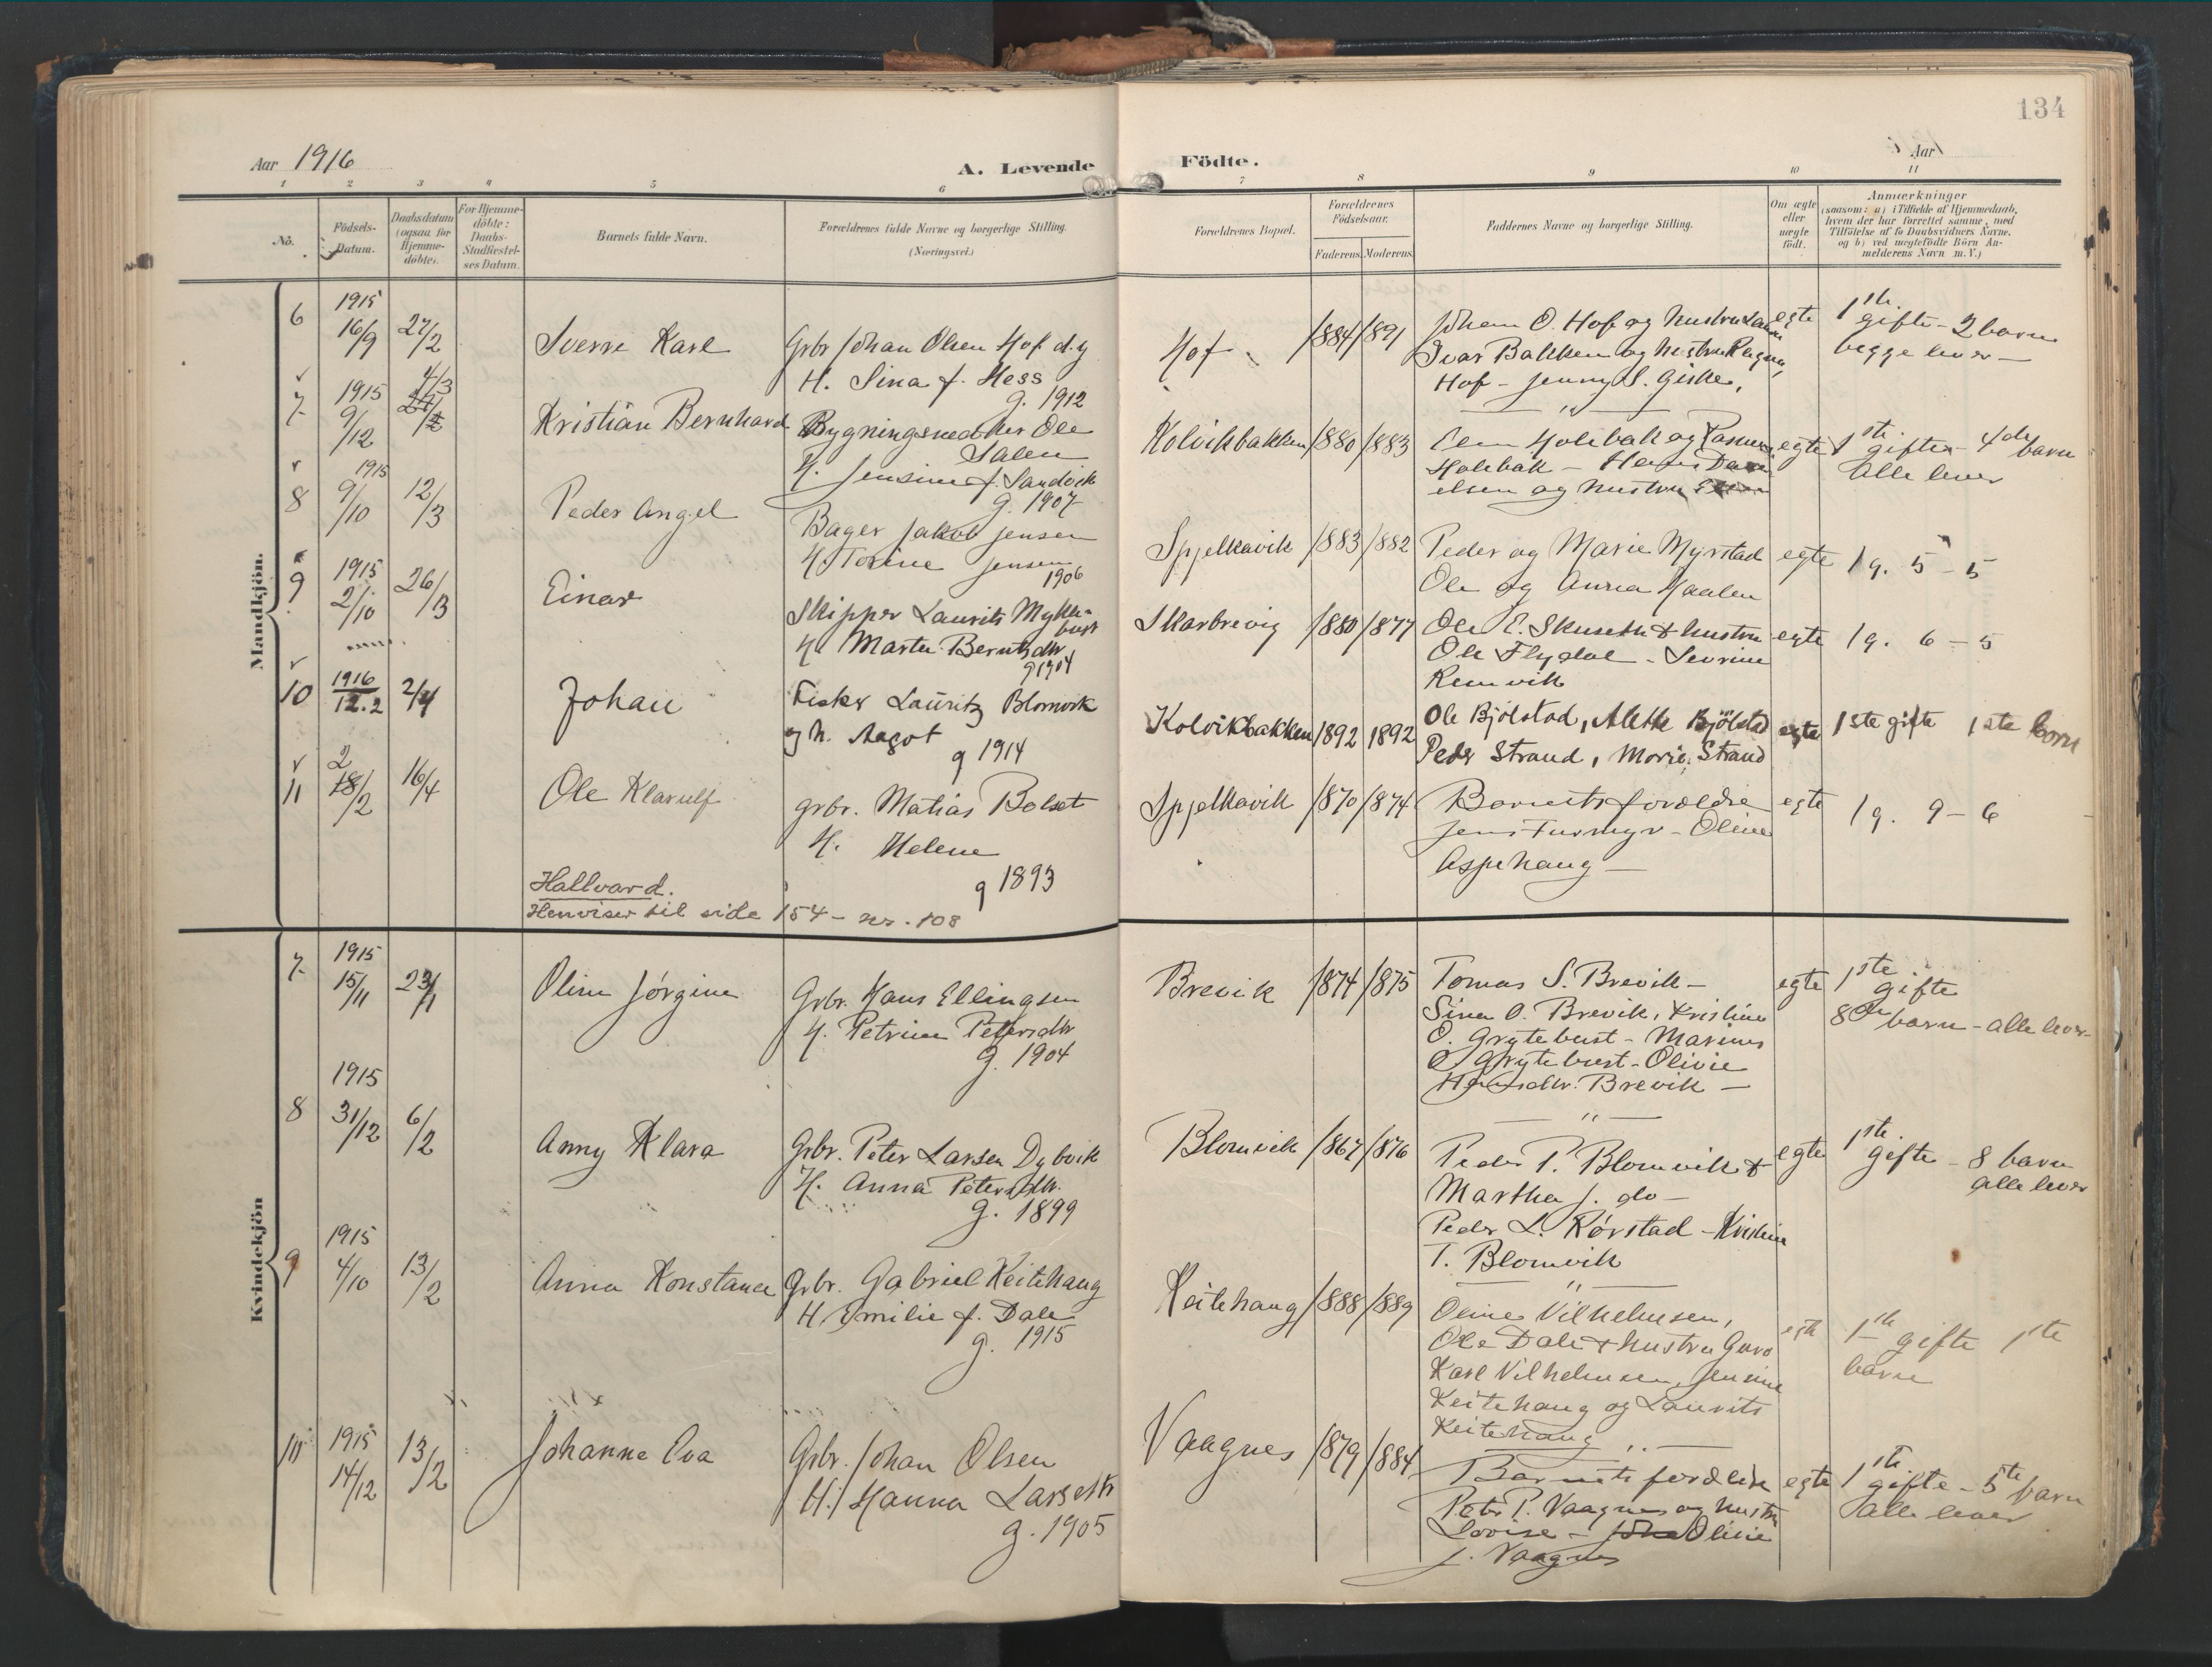 134
Aar 1916
A. Levende Födte.
Aar
1 2 3 4 5 6 7 8 9 10 11
No.
Födsels-Datum.
Daabsdatum (ogsaa for Hjemme-döbte).
For Hjemme-döbte: Daabs-Stadfæstel-ses Datum.
Barnets fulde Navn.
Forældrenes fulde Navne og borgerlige Stilling. (Næringsvei.)
Forældrenes Bopæl.
Forældrenes Födselsaar.
Faderens. Moderens.
Faddernes Navne og borgerlige Stilling.
Om ægte eller uægte födt.
Anmærkninger
(saasom: a) i Tilfælde af Hjemmedaab,
hvem der har forrettet samme, med
Tilföielse af to Daabsvidners Navne,
og b) ved uægtefödte Börn An-
melderens Navn m. V.)
Mandkjön.
6 1915 16/9 27/2 Sverre Karl
Grbr Johan Olsen Hof d.y
H. Sina f. Hess
g. 1912
Hof 1884 1891
Johan O. Hof og hustru
Ivar Bakken og hustru Ragna
Hof - Jenny S. Giske,
egte
1ste gifte - 2 barn
begge lever -
7 1915 9/12 4/3 Kristian Bernhard
Bygningssnedker Ole
Salen
H. Jensine f. Sandvik
g. 1907
Kolvikbakken 1880 1883
Holebak og
Holebak - Hans
elsen og hustru
egte
1ste gifte - 4de barn
alle lever
8 1915 9/10 12/3 Peder Angel
Bager Jakob Jensen
H. Torine Jensen
1906
Spjelkavik 1883 1882
Peder og Marie Myrstad
Ole og Anna Haalen
egte
1 g. 5 - 5
9 1915 2/10 26/3 Einar
Skipper Laurits Mykle-
bust
H. Marta Berntsdtr
g 1904
Skarbrevig 1880 1877
Ole E. Skuseth & hustru
Ole Flydal - Severine
Remvik
egte
1 g. 6 - 5
10 1916 12.2 2/4 Johan
Fisker Lauritz Blomvik
og h. Aagot
g 1914
Kolvikbakken 1892 1892
Ole Bjölstad, Alette Bjölstad
Peder Strand, Marie Strand
egte
1ste gifte 1ste barn
11 2 18/2 16/4 Ole Klarulf
grbr. Matias Bolset
H. Helene
g 1893
Spjelkavik 1870 1874
Barnets forældre
Jens Furmyr - Oline
Aspehaug -
egte
1 g. 9 - 6
Hallvard.
Henviser til side 154 - nr. 108
Kvindekjön
7 1915 15/11 23/1 Oline Jørgine
Grbr. Hans Ellingsen
H. Petrine Petersdtr
g. 1904
Brevik 1874 1875
Tomas S. Brevik -
Sina O. Brevik, Kristine
O. Grytebust - Marius
O Grytebust - Olivie
Hansdtr. Brevik -
egte
1ste gifte
8de barn - alle lever
8 1915 31/12 6/2 Anny Klara
Grbr. Peter Larsen Dybvik
H. Anna Petersdtr.
g. 1899
Blomvik 1867 1876
Peder P. Blomvik &
Martha J. do -
Peder L. Rørstad - Kristine
T. Blomvik
egte
1ste gifte - 8 barn
alle lever
9 1915 4/10 13/2 Anna Konstance
Grbr. Gabriel Keitehaug
H. Emilie f. Dale
g. 1915
Keitehaug 1888 1889
Oline Vilhelmsen,
Ole Dale & hustru Guro
Karl Vilhelmsen, Jensine
Keitehaug og Laurits
Keitehaug
egte
1ste gifte 1ste
barn
10 1915 14/12 13/2 Johanne Eva
Grbr. Johan Olsen
H. Hanna Larsdtr
g. 1905
Vaagnes 1879 1884
Barnets forældre
Peter P. Vaagnes og hustru
Lovise - Oline
J. Vaagnes
egte
1ste gifte - 5te barn
alle lever